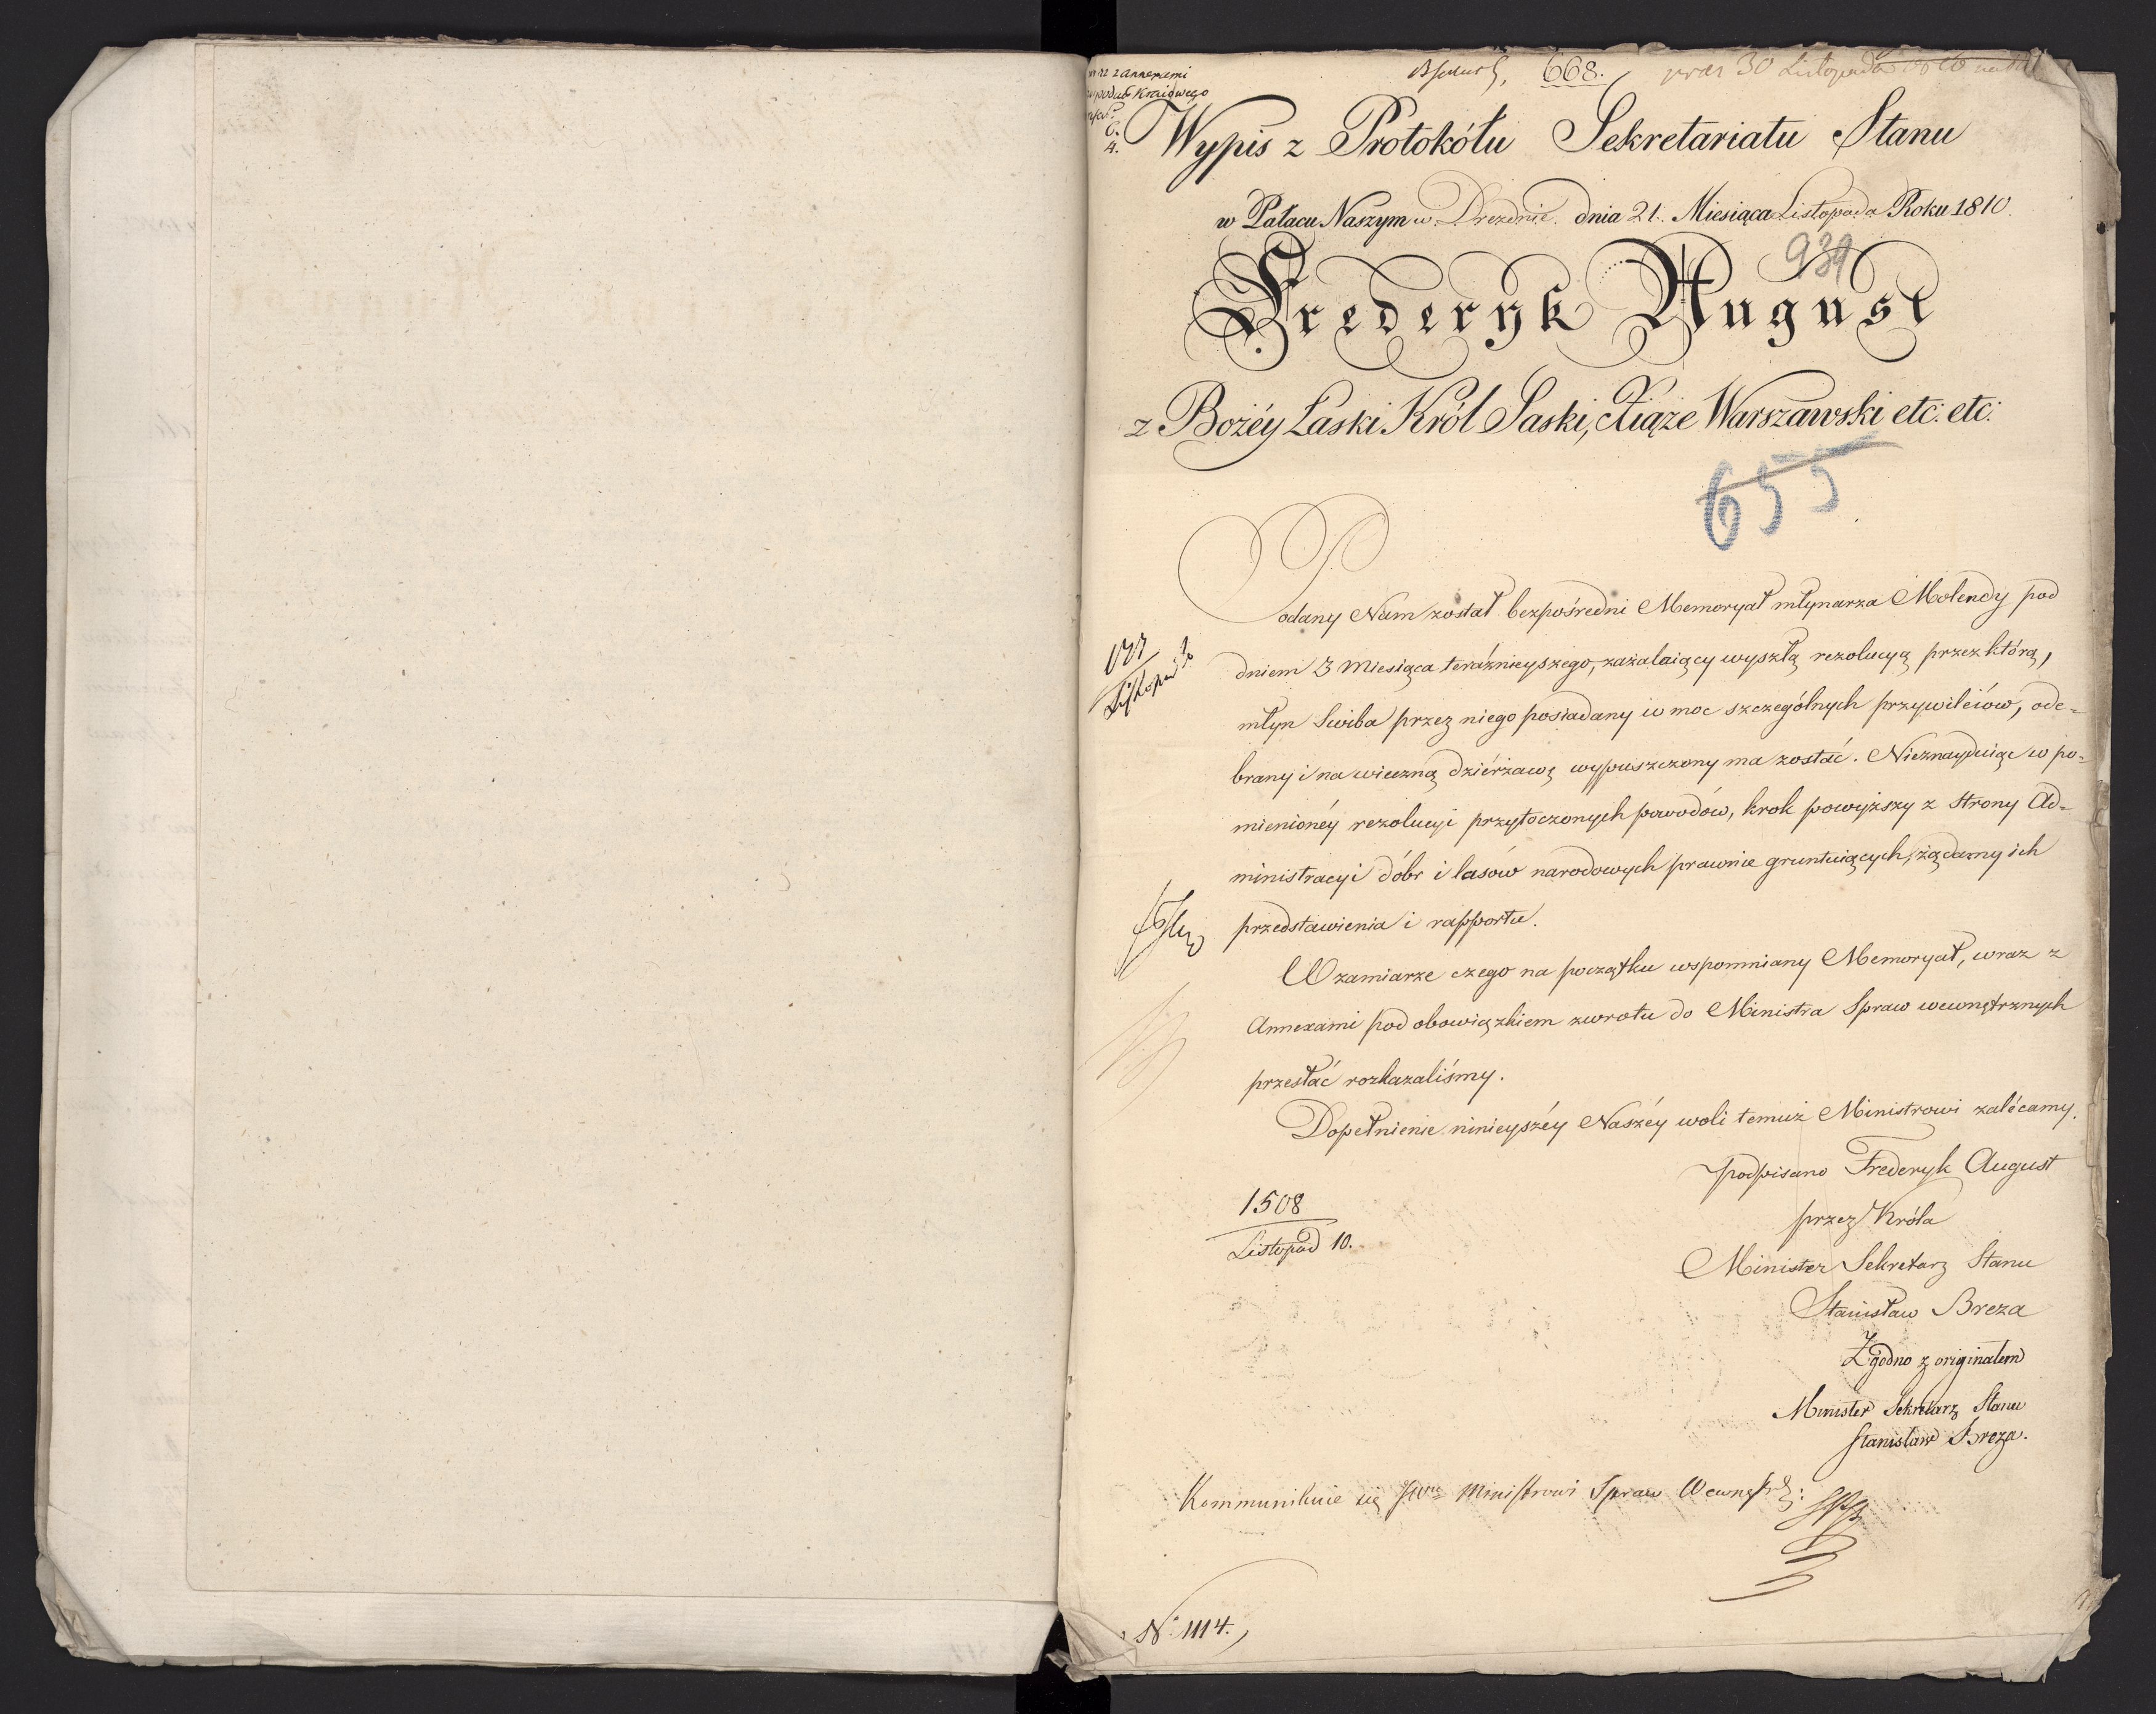 z annexami
Kraiowego
6.
4.
668. 30 Listopada
Wypis z Protokółu Sekretariatu Stanu
w Pałacu Naszym w Dreźnie. dnia 21. Miesiąca Listopada Roku 1810.
939
Frederyk August
z Bożéy Łaski Król Saski, Xiąże Warszawski etc: etc:
655
Podany Nam został bezpośredni Memoryał młynarza Molendy pod
dniem 3 Miesiąca teráznieyszego, zażalaiący wyszłą rezolucyą przez którą,
młyn Swiba przez niego posiadany w moc szczególnych przywileiów, ode=
brany i na wieczną dziérżawę wypuszczony ma zostać. Nieznayduiąc w po=
mienionéy rezolucyi przytoczonych powodów, krok powyższy z strony Ad=
ministracyi dóbr i lasów narodowych prawnie gruntuiących, żądamy ich
przedstawienia i rapportu.
W zamiarze czego na początku wspomniany Memoryał, wraz z
Annexami pod obowiązkiem zwrotu do Ministra Spraw wewnętrznych
przesłać rozkazaliśmy.
Dopełnienie ninieyszéy Naszéy woli temuż Ministrowi zalécamy.
Listopad
podpisano Frederyk August
przez Króla
Minister Sekretarz Stanu
Stanisław Breza
1508
Listopad 10.
Zgodno z originałem
Minister Sekretarz Stanu
Stanisław Breza.
Kommunikuie się Ministrowi Spraw Wewnętrz:
N. 1114.